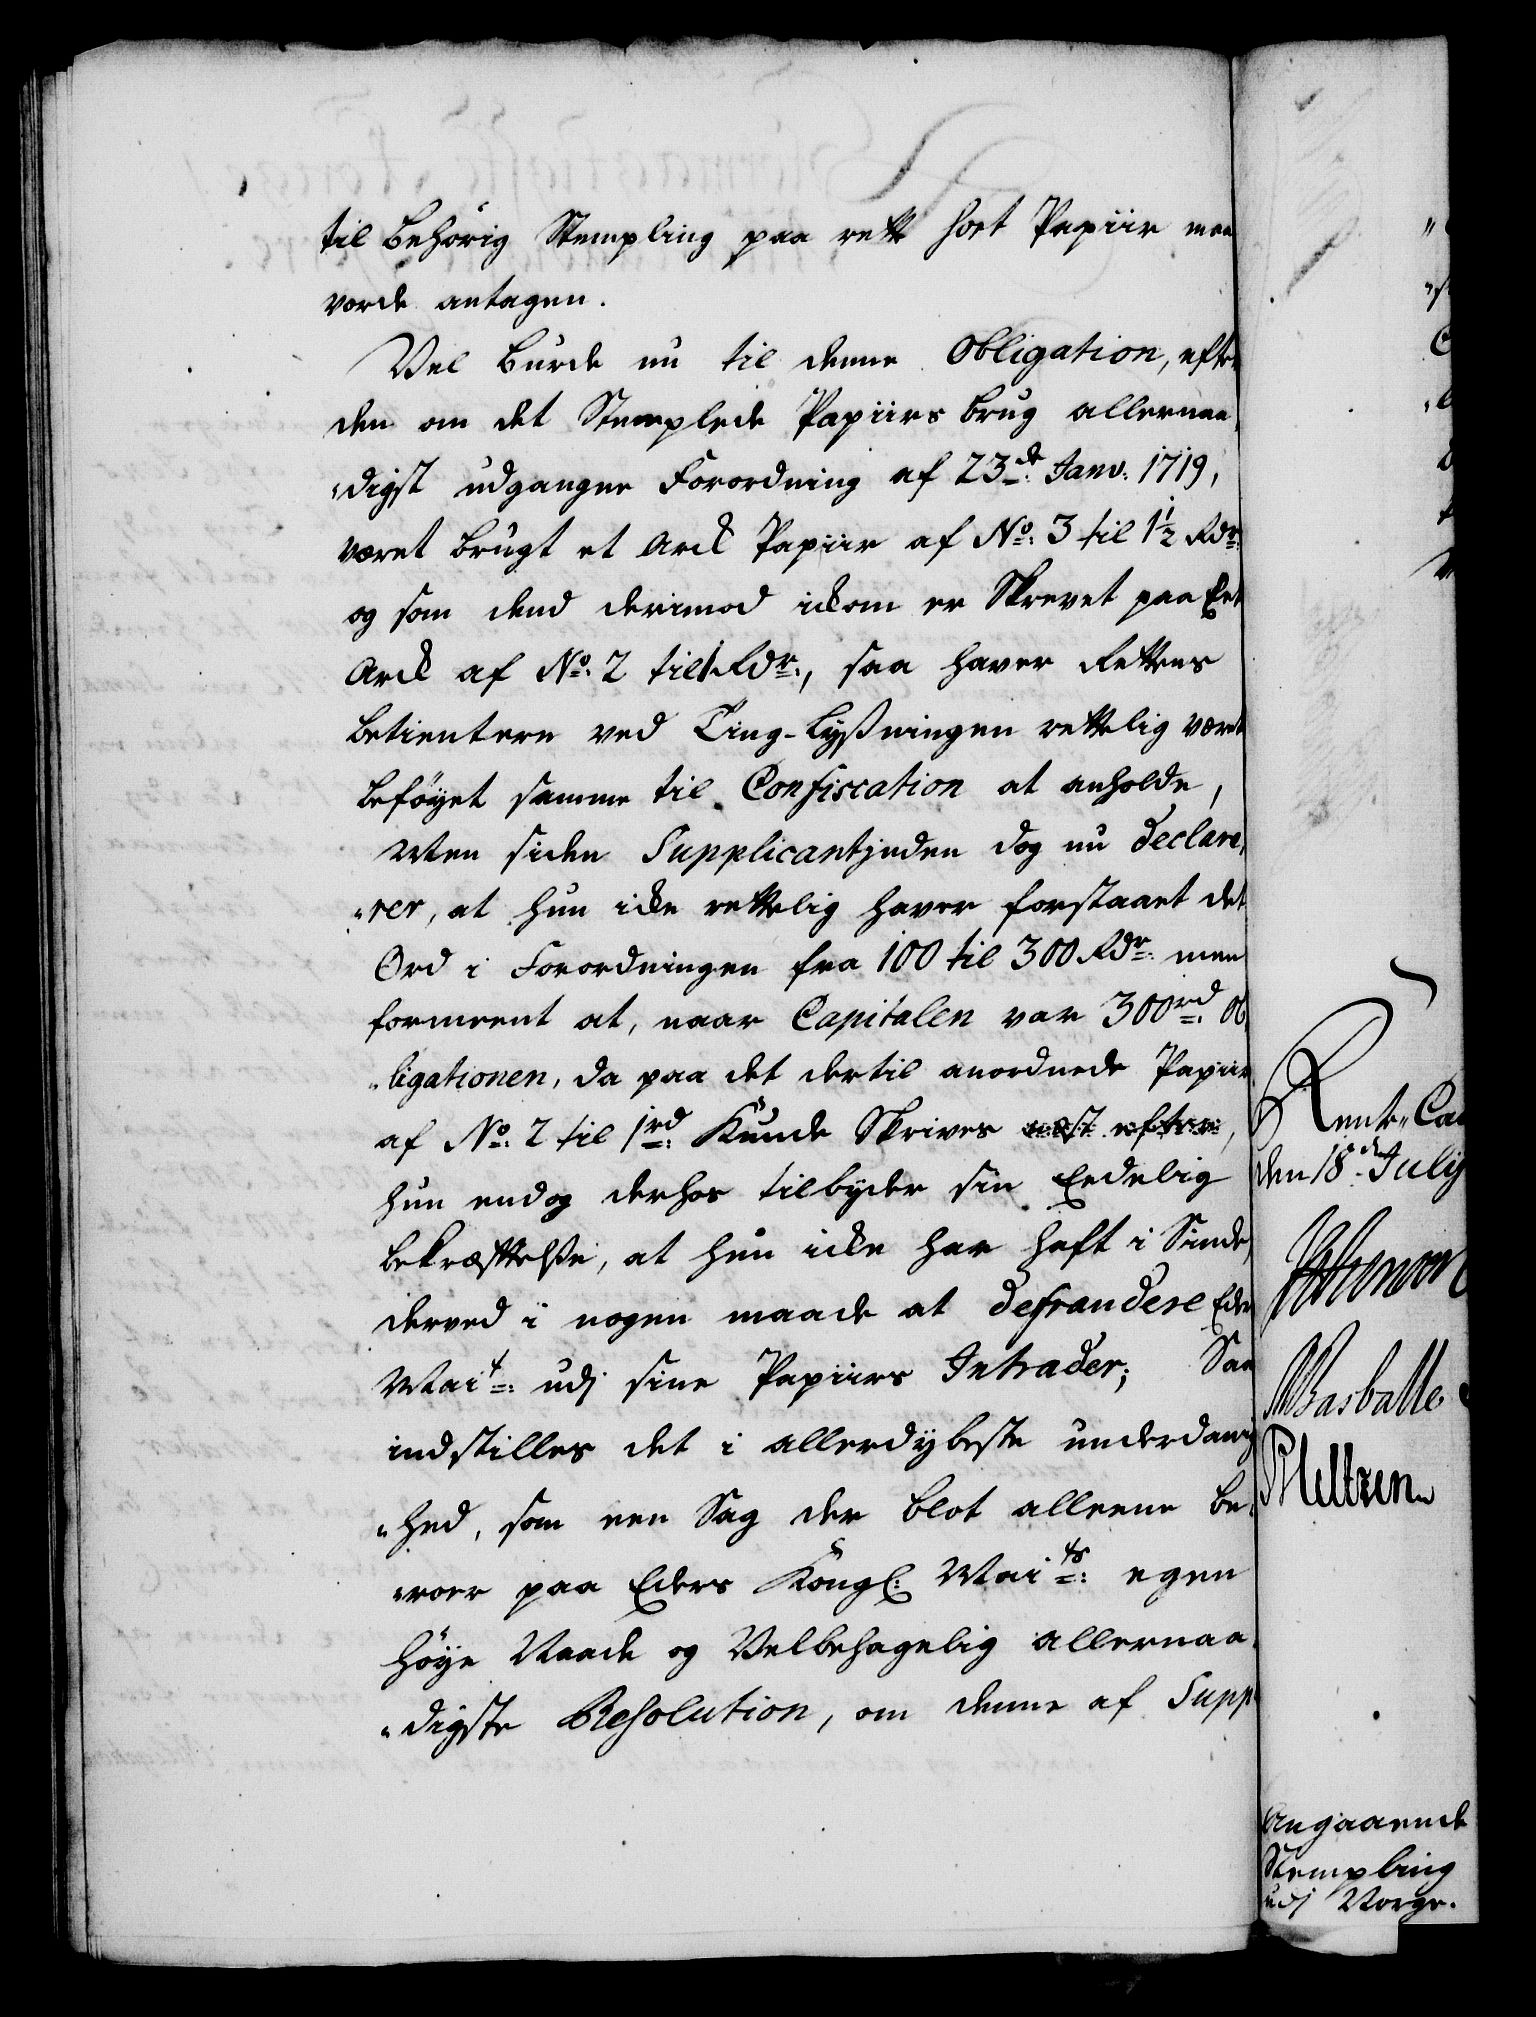 til behörig Stempling paa rett hoet Papiir maa
vorde antagen.
Vel burde nu til denne Obligation, efter
den om det Stemplede Papiirs brug allernaa„
„digst udgangne Forordning af 23de Janv: 1719,
været brugt et Arck Papiir af No: 3 til 1½ Rdr:
og som dend derimod ickom er Skrevet paa Eet
Arck af No: 2 til 1 Rdr:, saa haver Rettens
betientere ved Ting-Lyßningen rettelig været
beföyet samme til Confiscation at anholde,
Men siden Supplicantjnden dog nu declare„
„rer, at hun icke rettelig haver forstaaet det
Ord i Forordningen fra 100 til 300 Rdr: men
formeent at, naar Capitalen var 300 rd: Ob„
„ligationen, da paa det dertil anordnede Papiir
af No: 2 til 1 rd: Kunde Skrives
hun endog derhos tilbyder sin Eedelig
bekræfttelße, at hun icke har haft i Sinde,
derved i nogen maade at defraudere Eders
Mait: udj sine Papiirs Intrader; Saa
indstilles det i allerdybeste underdanig
„hed, som een Sag der blot alleene be„
„roer paa Eders Kongl: Maits: egen
höye Naade og Velbehagelig allernaa„
„digste Resolution, om denne af Supp
Rente-Ca
den 18de July
Angaaende
Stempling
udj Norge.